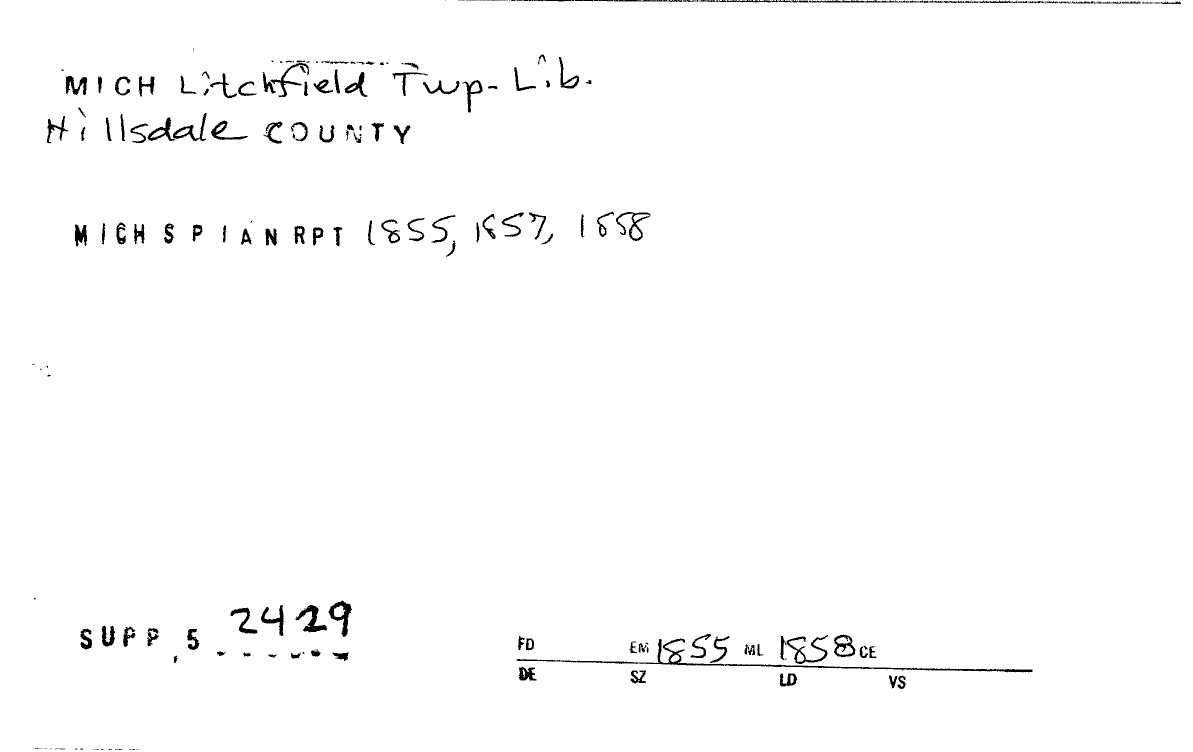 MICH Litchfield Twp- Lib.
Hillsdale COUNTY
MICH S P I A N RPT 1855, 1857, 1858
SUPP. 5 2429
FD EM 1855 ML 1858 CE
DE SZ LD VS